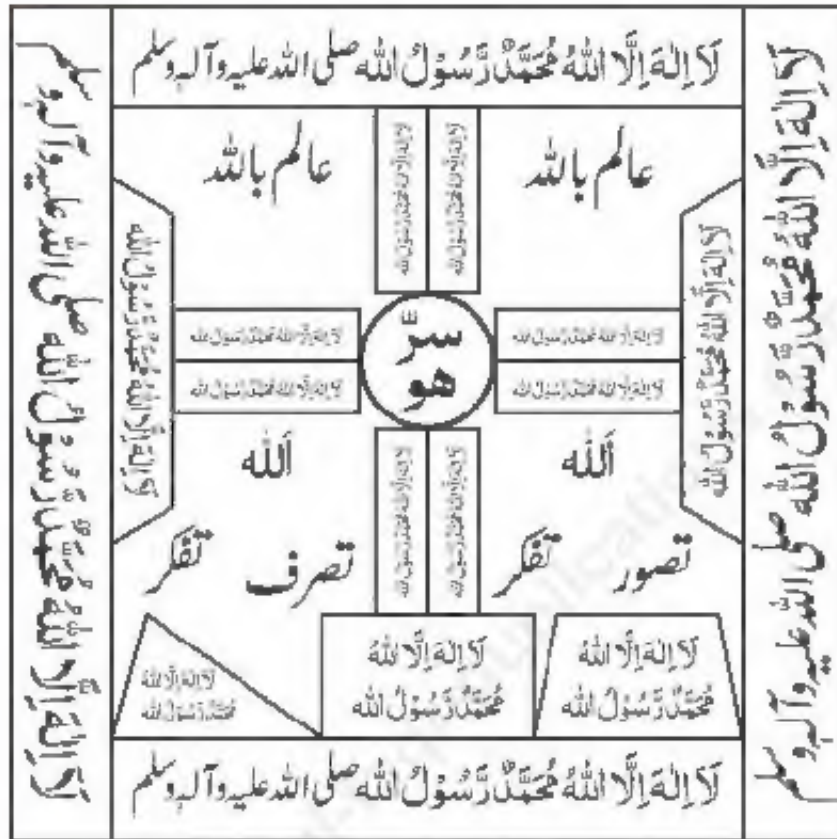 لَا اِلٰهَ اِلَّا اللهُ مُحَمَّدٌ رَّسُوْلُ اللهِ صلی اللہ علیہ وآلہٖ وسلم
لَا اِلٰهَ اِلَّا اللهُ مُحَمَّدٌ رَّسُوْلُ اللهِ صلی اللہ علیہ وآلہٖ وسلم
لَا اِلٰهَ اِلَّا اللهُ مُحَمَّدٌ رَّسُوْلُ اللهِ صلی اللہ علیہ وآلہٖ وسلم
عالم باللہ
لَا اِلٰهَ اِلَّا اللهُ مُحَمَّدٌ رَّسُوْلُ اللهِ
لَا اِلٰهَ اِلَّا اللهُ مُحَمَّدٌ رَّسُوْلُ اللهِ
عالم باللہ
لَا اِلٰهَ اِلَّا اللهُ مُحَمَّدٌ رَّسُوْلُ اللهِ
لَا اِلٰهَ اِلَّا اللهُ مُحَمَّدٌ رَّسُوْلُ اللهِ
لَا اِلٰهَ اِلَّا اللهُ مُحَمَّدٌ رَّسُوْلُ اللهِ
لَا اِلٰهَ اِلَّا اللهُ مُحَمَّدٌ رَّسُوْلُ اللهِ
سرّ
ھو
لَا اِلٰهَ اِلَّا اللهُ مُحَمَّدٌ رَّسُوْلُ اللهِ
لَا اِلٰهَ اِلَّا اللهُ مُحَمَّدٌ رَّسُوْلُ اللهِ
لَا اِلٰهَ اِلَّا اللهُ مُحَمَّدٌ رَّسُوْلُ اللهِ
اَللّٰہ
لَا اِلٰهَ اِلَّا اللهُ مُحَمَّدٌ رَّسُوْلُ اللهِ
لَا اِلٰهَ اِلَّا اللهُ مُحَمَّدٌ رَّسُوْلُ اللهِ
اَللّٰہ
تصور تفکر
تصرف تفکر
لَا اِلٰهَ اِلَّا اللهُ
مُحَمَّدٌ رَّسُوْلُ اللهِ
لَا اِلٰهَ اِلَّا اللهُ
مُحَمَّدٌ رَّسُوْلُ اللهِ
لَا اِلٰهَ اِلَّا اللهُ
مُحَمَّدٌ رَّسُوْلُ اللهِ
لَا اِلٰهَ اِلَّا اللهُ مُحَمَّدٌ رَّسُوْلُ اللهِ صلی اللہ علیہ وآلہٖ وسلم